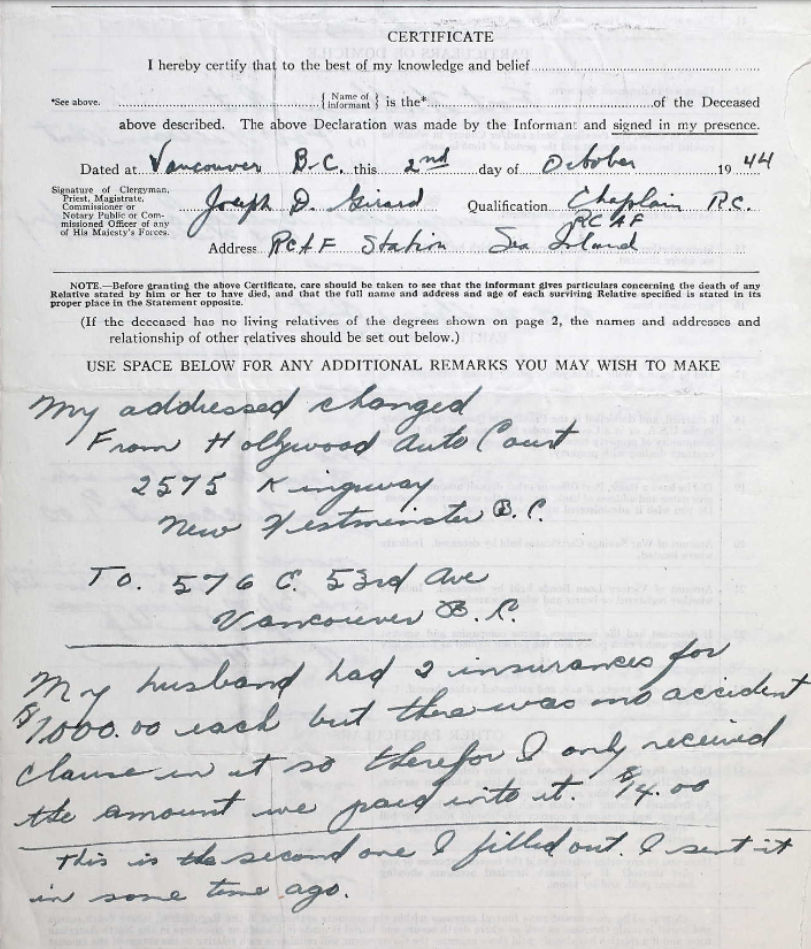 CERTIFICATE
I hereby certify that to the best of my knowledge and belief
*See above. { Name of informant } is the* of the Deceased
above described. The above Declaration was made by the Informant and signed in my presence.
Dated at Vancouver B.C. this 2nd day of October 1944
Signature of Clergyman,
Priest, Magistrate,
Commissioner or
Notary Public or Com-
missioned Officer of any
of His Majesty's Forces.
Joseph D. Girard Qualification Chaplain R.C.
RCAF
Address RCAF Station Sea Island
NOTE.—Before granting the above Certificate, care should be taken to see that the informant gives particulars concerning the death of any
Relative stated by him or her to have died, and that the full name and address and age of each surviving Relative specified is stated in its
proper place in the Statement opposite.
(If the deceased has no living relatives of the degrees shown on page 2, the names and addresses and
relationship of other relatives should be set out below.)
USE SPACE BELOW FOR ANY ADDITIONAL REMARKS YOU MAY WISH TO MAKE
My addressed changed
From Hollywood Auto Court
2575 Kingsway
New Westminster B.C.
To. 576 E. 53rd Ave
Vancouver B.C.
My husband had 2 insurances for
$1,000.00 each but there was no accident
clause in it so therefor I only received
the amount we paid into it $14.00
This is the second one I filled out. I sent it
in some time ago.